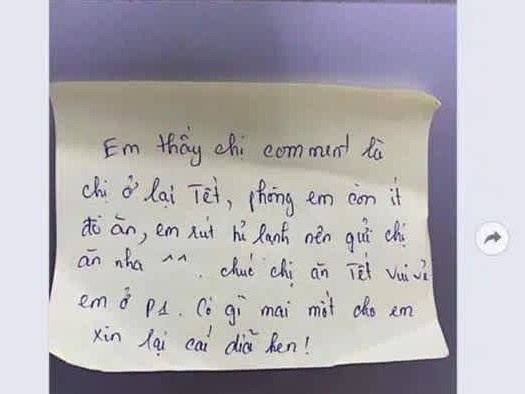 Em thấy chị comment là
chị ở lại Tết, phòng em còn ít
đồ ăn, em rút tủ lạnh nên gửi chị
ăn nha ^^. chúc chị ăn Tết vui vẻ
em ở P1. Có gì mai mốt cho em
xin lại cái dĩa hen!